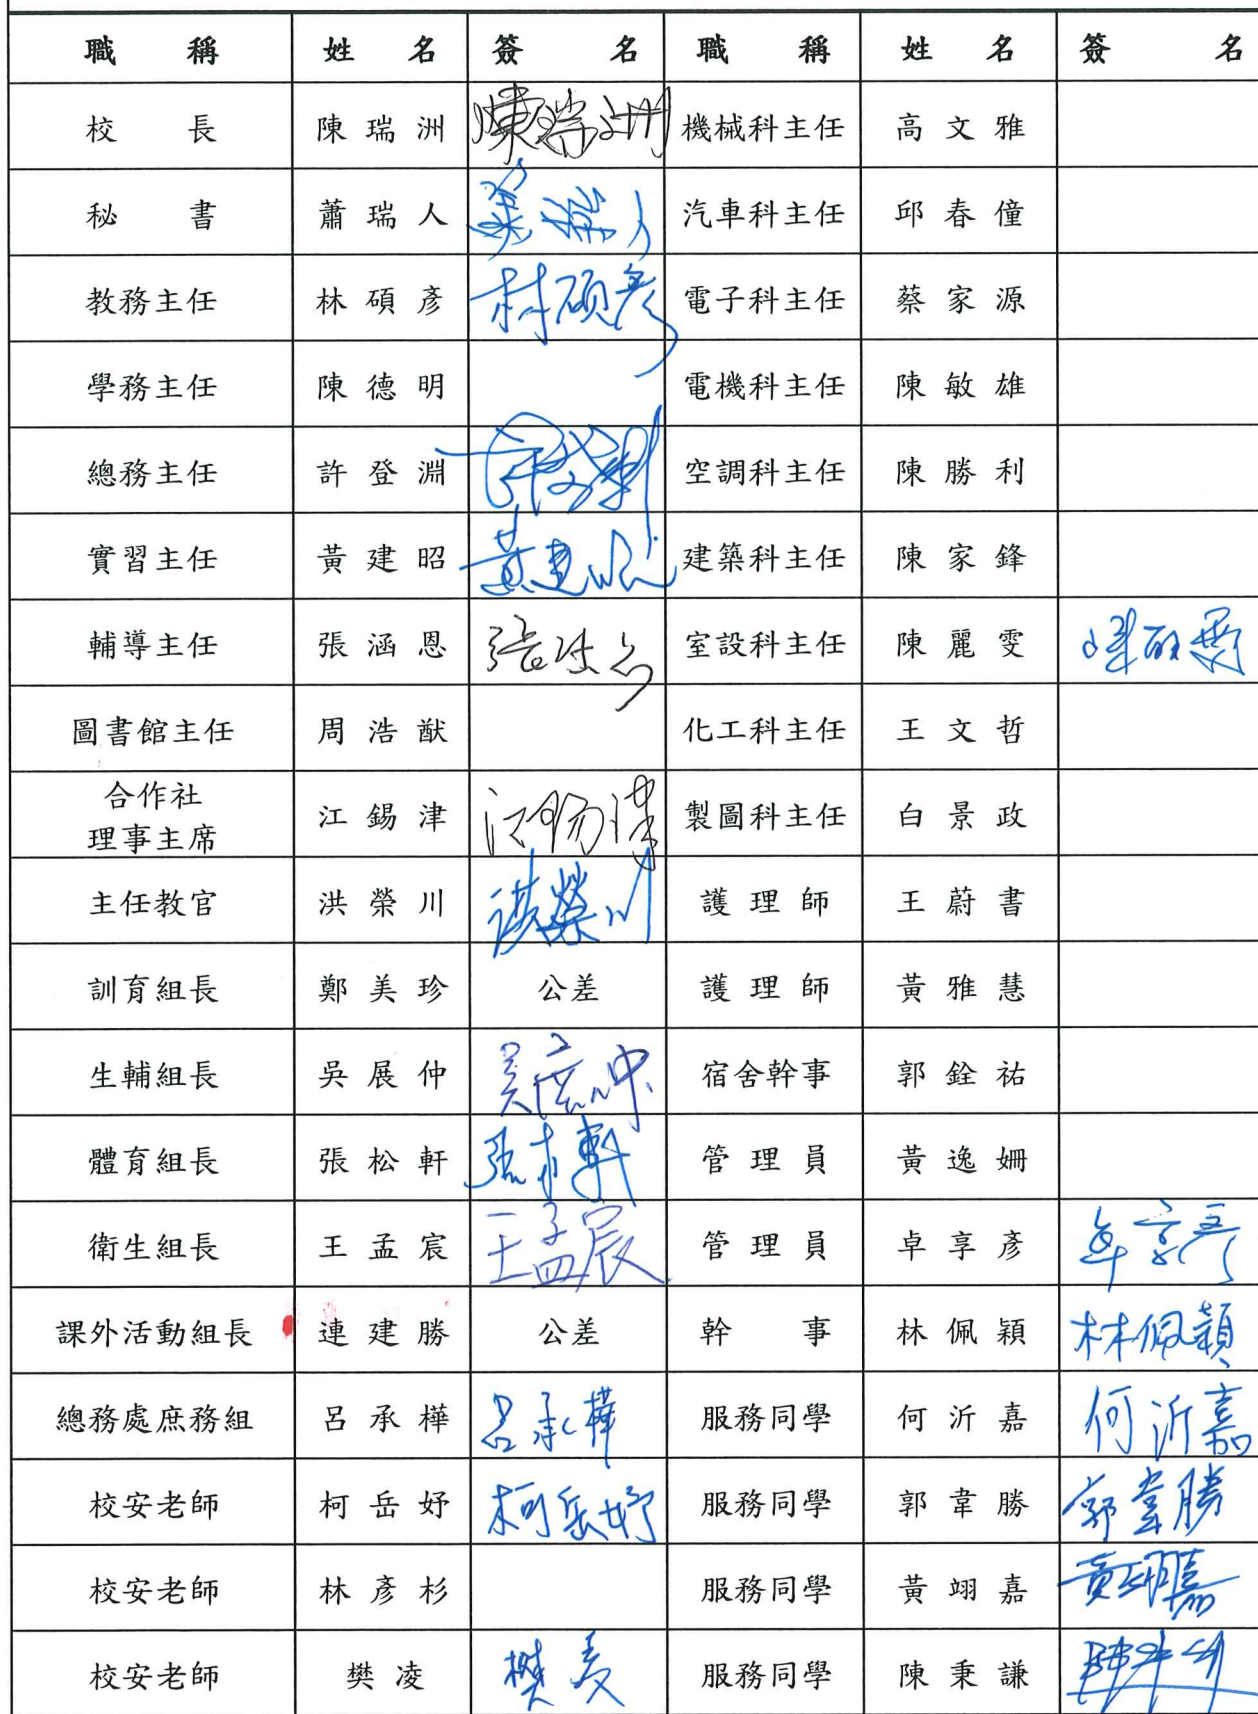 職稱 姓名 簽名 職稱 姓名 簽名
校長 陳瑞洲 陳瑞洲 機械科主任 高文雅
秘書 蕭瑞人 蕭瑞人 汽車科主任 邱春僮
教務主任 林碩彥 林碩彥 電子科主任 蔡家源
學務主任 陳德明 電機科主任 陳敏雄
總務主任 許登淵 許登淵 空調科主任 陳勝利
實習主任 黃建昭 黃建昭 建築科主任 陳家鋒
輔導主任 張涵恩 張涵恩 室設科主任 陳麗雯 陳麗雯
圖書館主任 周浩猷 化工科主任 王文哲
合作社
理事主席 江錫津 江錫津 製圖科主任 白景政
主任教官 洪榮川 洪榮川 護理師 王蔚書
訓育組長 鄭美珍 公差 護理師 黃雅慧
生輔組長 吳展仲 吳展仲 宿舍幹事 郭銓祐
體育組長 張松軒 張松軒 管理員 黃逸姍
衛生組長 王孟宸 王孟宸 管理員 卓享彥 卓享彥
課外活動組長 連建勝 公差 幹事 林佩穎 林佩穎
總務處庶務組 呂承樺 呂承樺 服務同學 何沂嘉 何沂嘉
校安老師 柯岳妤 柯岳妤 服務同學 郭韋勝 郭韋勝
校安老師 林彥杉 服務同學 黃翊嘉 黃翊嘉
校安老師 樊凌 樊凌 服務同學 陳秉謙